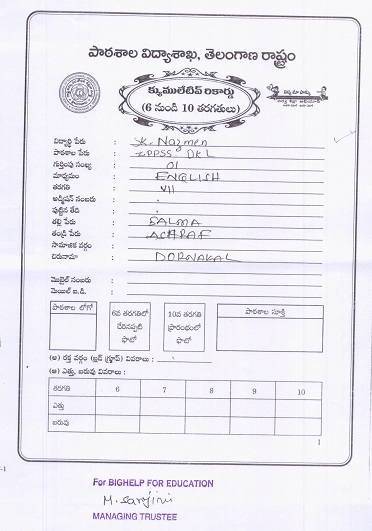 పాఠశాల విద్యాశాఖ, తెలంగాణ రాష్ట్రం
క్యుములేటివ్ రికార్డు
(6 నుండి 10 తరగతులు)
విద్యార్థి పేరు : SK. Nazmen
పాఠశాల పేరు : ZPPSS DKL
గుర్తింపు సంఖ్య : 01
మాధ్యమం : ENGLISH
తరగతి : VII
అడ్మిషన్ నంబరు :
పుట్టిన తేది :
తల్లి పేరు : SALMA
తండ్రి పేరు : ACHRAF
సామాజిక వర్గం :
చిరునామా : DORNAKAL
మొబైల్ నంబరు :
మెయిల్ ఐ.డి. :
పాఠశాల లోగో
6వ తరగతిలో చేరినప్పటి ఫొటో
10వ తరగతి ప్రారంభంలో ఫొటో
పాఠశాల సూక్తి
(అ) రక్త వర్గం (బ్లడ్ గ్రూప్) వివరాలు :
(ఆ) ఎత్తు, బరువు వివరాలు :
తరగతి 6 7 8 9 10
ఎత్తు
బరువు
1
For BIGHELP FOR EDUCATION
M. Sarojini
MANAGING TRUSTEE